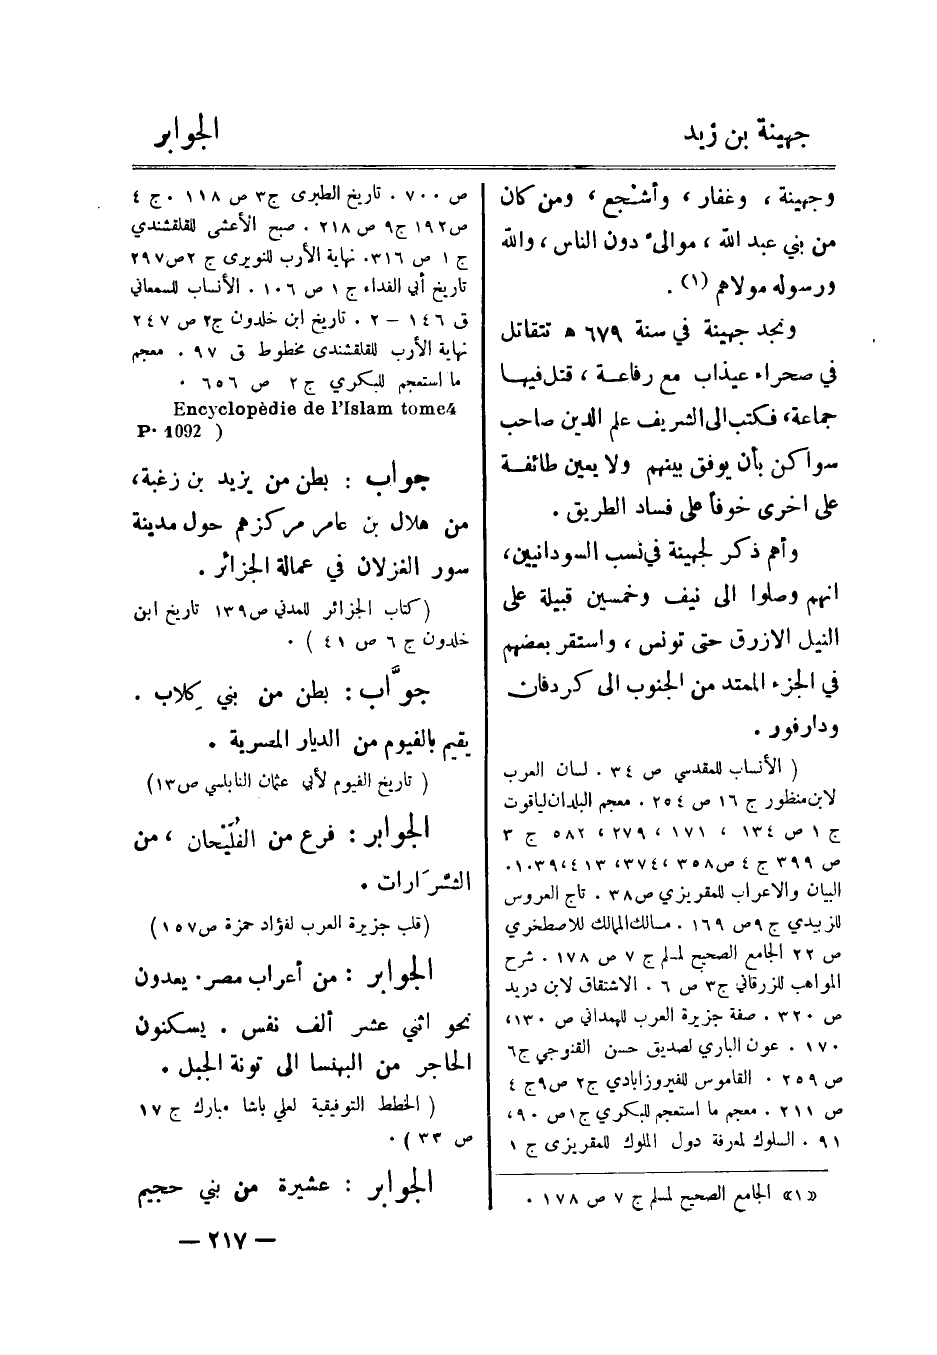 جهينة بن زيد
الجوابر
وجهينة ، وغفار ، وأشْجع ، ومن كان
من بني عبد الله ، موالىّ دون الناس ، والله
ورسوله مولاهم (١) .
ونجد جهينة في سنة ٦٧٩ ه تتقاتل
في صحراء عيذاب مع رفاعة ، قتل فيها
جماعة، فكتب الى الشريف علم الدين صاحب
سواكن بأن يوفق بينهم ولا يعين طائفة
على اخرى خوفاً على فساد الطريق .
وأهم ذكر لجهينة في نسب السودانيين،
انهم وصلوا الى نيف وخمسين قبيلة على
النيل الازرق حتى تونس ، واستقر بعضهم
في الجزء الممتد من الجنوب الى كردفان
ودارفور .
( الأنساب للمقدسي ص ٣٤ . لسان العرب
لابن منظور ج ١٦ ص ٢٥٤ . معجم البلدان لياقوت
ج ١ ص ١٣٤ ، ١٧١ ، ٢٧٩ ، ٥٨٢ ج ٣
ص ٣٩٩ ج ٤ ص ٣٥٨ ، ٣٧٤، ٤١٣ ،١٠٣٩.
البيان والاعراب للمقريزي ص ٣٨ . تاج العروس
للزبيدي ج ٩ ص ١٦٩ . مسالك المالك للاصطخري
ص ٢٢ الجامع الصحيح لمسلم ج ٧ ص ١٧٨ . شرح
المواهب للزرقاني ج ٣ ص ٦ . الاشتقاق لابن دريد
ص ٣٢٠ . صفة جزيرة العرب للهمداني ص ١٣٠،
١٧٠ . عون الباري لصديق حسن القنوجي ج ٦
ص ٢٥٩ . القاموس للفيروزابادي ج ٢ ص ٩ ج ٤
ص ٢١١ . معجم ما استعجم للبكري ج ١ ص ٩٠،
٩١ . السلوك لمعرفة دول الملوك للمقريزى ج ١
«١» الجامع الصحيح لمسلم ج ٧ ص ١٧٨ .
ص ٧٠٠ . تاريخ الطبرى ج ٣ ص ١١٨ . ج ٤
ص ١٩٢ ج ٩ ص ٢١٨ . صبح الأعشى للقلقشندي
ج ١ ص ٣١٦. نهاية الأرب للنويرى ج ٢ ص ٢٩٧
تاريخ أبي الفداء ج ١ ص ١٠٦ . الأنساب للسمعاني
ق ١٤٦ – ٢ . تاريخ ابن خلدون ج ٢ ص ٢٤٧
نهاية الأرب للقلقشندى مخطوط ق ٩٧ . معجم
ما استعجم للبكري ج ٢ ص ٦٥٦ .
Encyclopèdie de l'Islam tome4
P. 1092 )
جواب : بطن من يزيد بن زغبة،
من هلال بن عامر مركزهم حول مدينة
سور الغزلان في عمالة الجزائر .
(كتاب الجزائر للمدني ص ١٣٩ تاريخ ابن
خلدون ج ٦ ص ٤١ ) .
جوَّاب : بطن من بني كِلاب .
يقيم بالفيوم من الديار المصرية .
( تاريخ الفيوم لأبي عثمان النابلسي ص ١٣)
الجوابر : فرع من الفُلَيْحان ، من
الشَّرَارات .
(قلب جزيرة العرب لفؤاد حمزة ص ١٥٧)
الجوابر : من أعراب مصر. يعدون
نحو اثني عشر ألف نفس . يسكنون
الحاجر من البهنسا الى تونة الجبل .
( الخطط التوفيقية لعلي باشا مبارك ج ١٧
ص ٣٣ ) .
الجوابر : عشيرة من بني حجيم
— ٢١٧ —